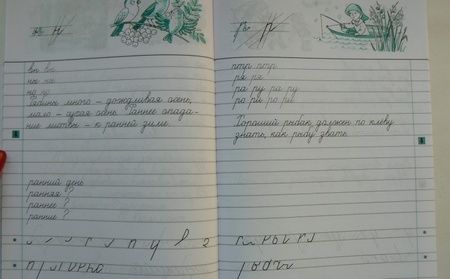 н
вн вс
ны на
но
Рябины много – дождливая осень,
мало – сухая осень. Раннее опада-
ние листвы – к ранней зиме.
ранний день
ранняя ?
раннее ?
ранние ?
р
птр птр
ря ря
ра ру ра ру
ро ри ро ри
Хороший рыбак должен по клеву
знать, как рыбу звать.